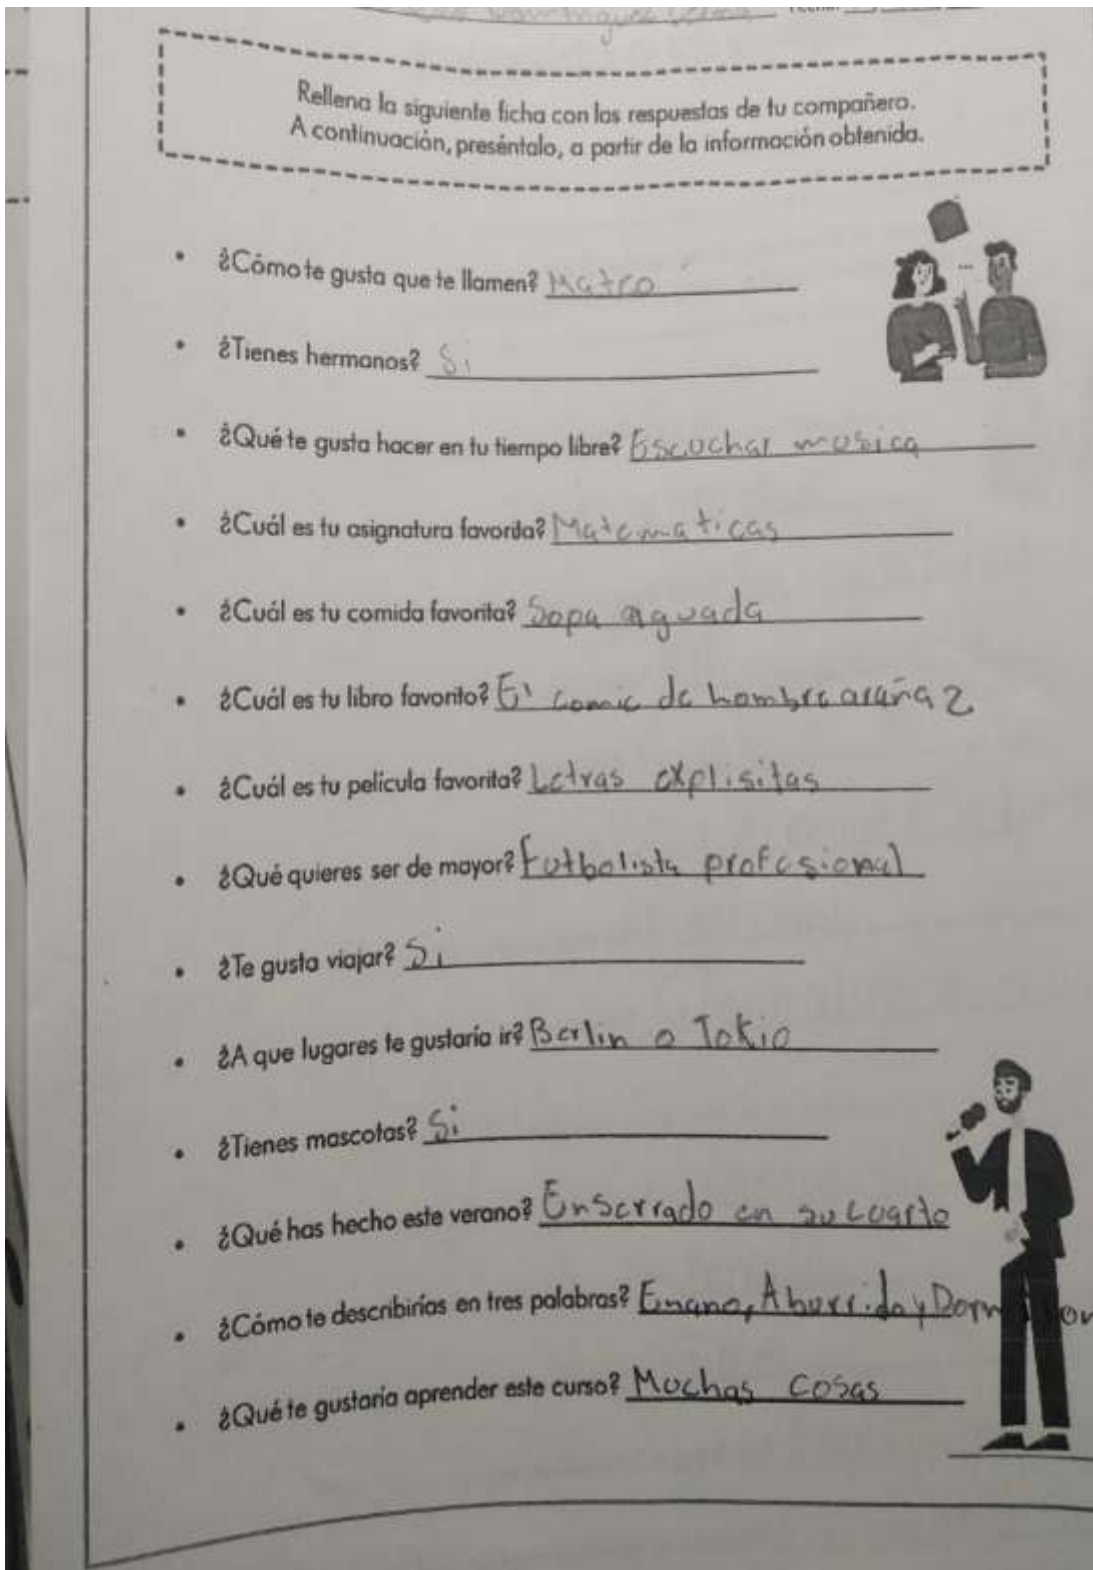 Rellena la siguiente ficha con las respuestas de tu compañero.
A continuación, preséntalo, a partir de la información obtenida.
¿Cómo te gusta que te llamen? Matro
¿Tienes hermanos? Si
¿Qué te gusta hacer en tu tiempo libre? Escuchar musica
¿Cuál es tu asignatura favorita? Matematicas
¿Cuál es tu comida favorita? Sopa aguada
¿Cuál es tu libro favorito? El comic de hombre araña 2
¿Cuál es tu película favorita? Letras explisitas
¿Qué quieres ser de mayor? Futbolista profesional
¿Te gusta viajar? Si
¿A que lugares te gustaría ir? Berlin o Tokio
¿Tienes mascotas? Si
¿Qué has hecho este verano? Enserrado en su cuarto
¿Cómo te describirías en tres palabras? Enano, Aburrido y
¿Qué te gustaría aprender este curso? Muchas cosas